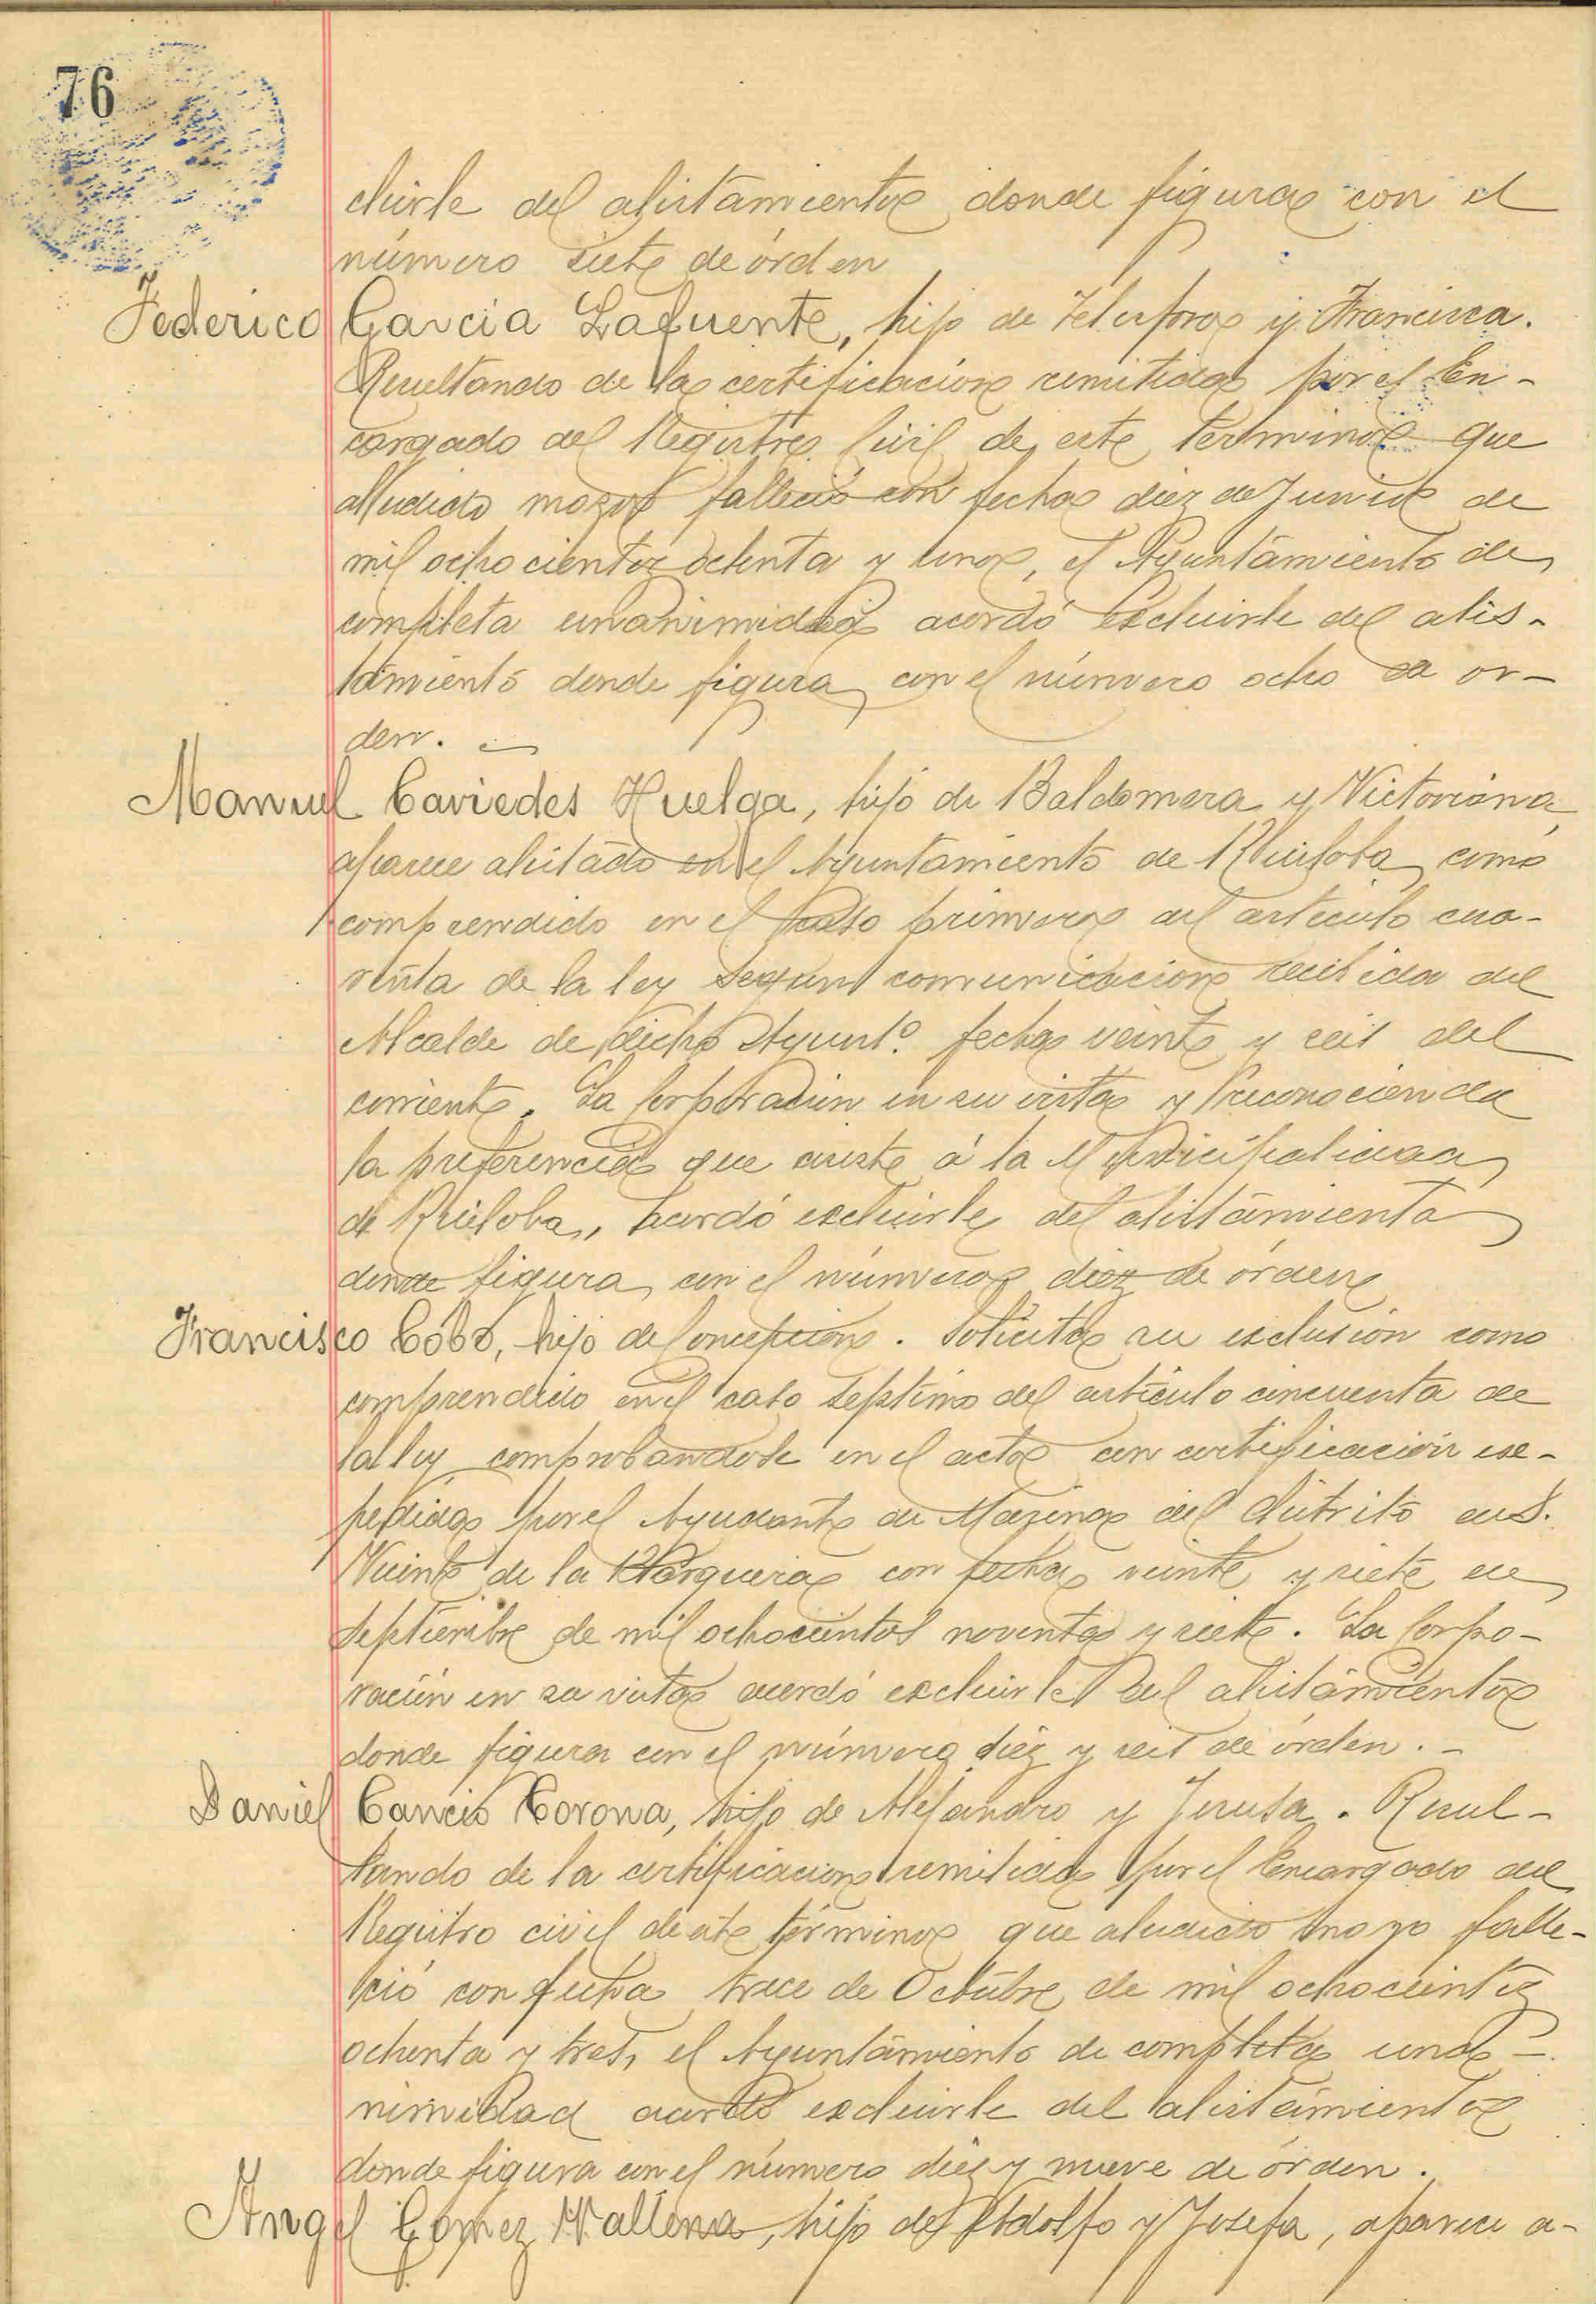 76
cluirle del alistamiento donde figura con el
número siete de órden
Federico Garcia Lafuente, hijo de Telesforo y Francisca.
Resultando de la certificación remitida por el En-
cargado del Registro Civil de este termino que
aludido mozo falleció con fecha diez de Junio de
mil ochocientos ochenta y uno, el Ayuntamiento de
completa unanimidad acordó excluirle del alis-
tamiento donde figura con el número ocho de or-
den.
Manuel Caviedes Huelga, hijo de Baldomera y Victoriana,
aparece alistado en el Ayuntamiento de Ruiloba como
comprendido en el caso primero del articulo cua-
renta de la ley segun comunicacion recibida del
Alcalde de dicho Ayunto. fecha veinte y seis del
corriente. La Corporacion en su vista y reconociendo
la preferencia que asiste á la Municipalidad
de Ruiloba, acordó excluirle del alistamiento
donde figura con el número diez de órden
Francisco Cobo, hijo de Concepcion. Solicita su exclusion como
comprendido en el caso septimo del articulo cincuenta de
la ley comprobandose en el acto con certificación ex-
pedida por el Ayudante de Marina del distrito de S.
Vicente de la Barquera con fecha veinte y siete de
Septiembre de mil ochocientos noventa y siete. La Corpo-
racion en su vista acordó excluirle del alistamiento
donde figura con el número diez y seis de órden.
Daniel Cancio Corona, hijo de Alejandro y Teresa. Resul-
tando de la certificacion remitida por el Encargado del
Registro civil de este término que aludido mozo falle-
ció con fecha trece de Octubre de mil ochocientos
ochenta y tres, el Ayuntamiento de completa una-
nimidad acordó excluirle del alistamiento
donde figura con el número diez y nueve de órden.
Angel Gomez Vallina, hijo de Adolfo y Josefa, aparece a-